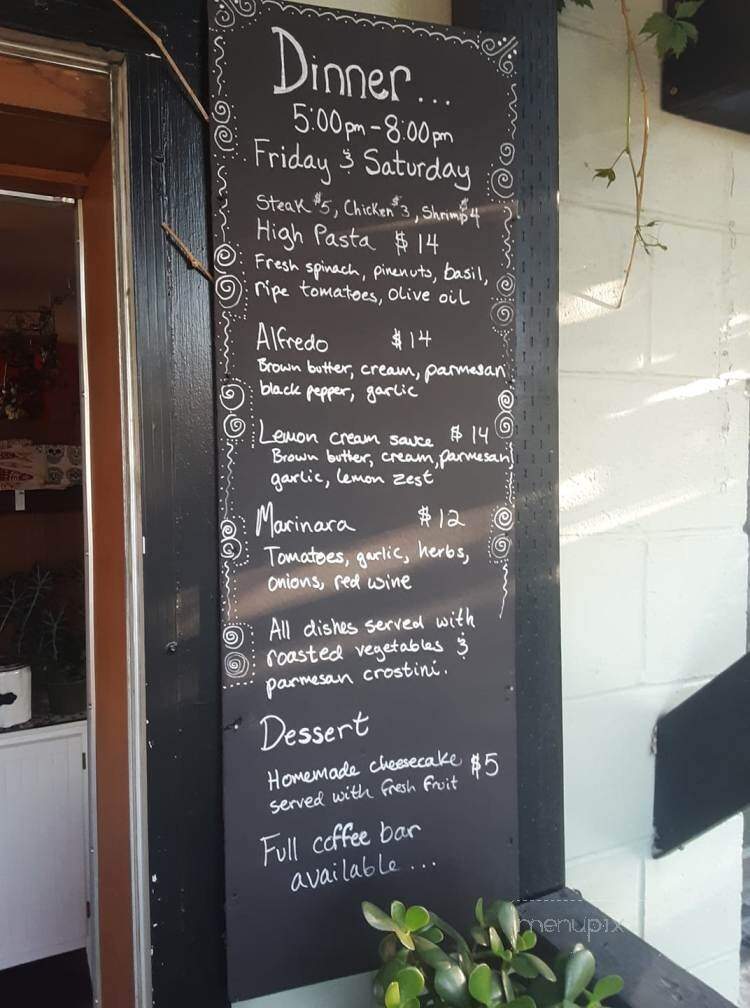 Dinner...
5:00pm-8:00pm
Friday & Saturday
Steak $5, Chicken $3, Shrimp $4
High Pasta $14
Fresh spinach, pinenuts, basil,
ripe tomatoes, olive oil
Alfredo $14
Brown butter, cream, parmesan
black pepper, garlic
Lemon cream sauce $14
Brown butter, cream, parmesan
garlic, lemon zest
Marinara $12
Tomatoes, garlic, herbs,
onions, red wine
All dishes served with
roasted vegetables &
parmesan crostini.
Dessert
Homemade cheesecake $5
served with fresh fruit
Full coffee bar
available...
menupix